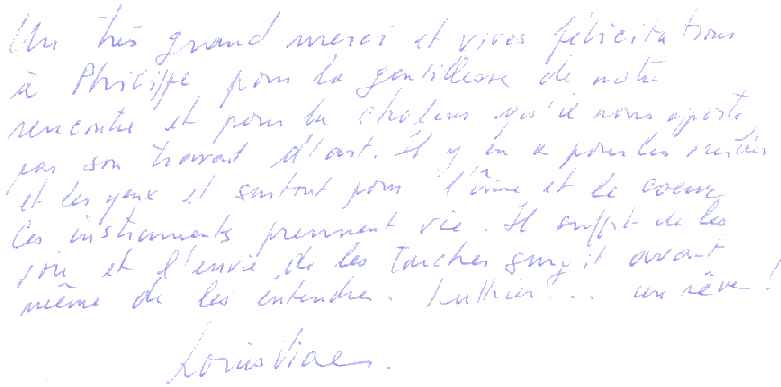 Un très grand merci et vives félicitations
à Philippe pour la gentillesse de notre
rencontre et pour la chaleur qu'il nous apporte
par son travail d'art. Il y en a pour les oreilles
et les yeux et surtout pour l'âme et le coeur
Ces instruments prennent vie. Il suffit de les
voir et l'envie de les toucher surgit avant
même de les entendre. Luthier... un rêve!
Louis